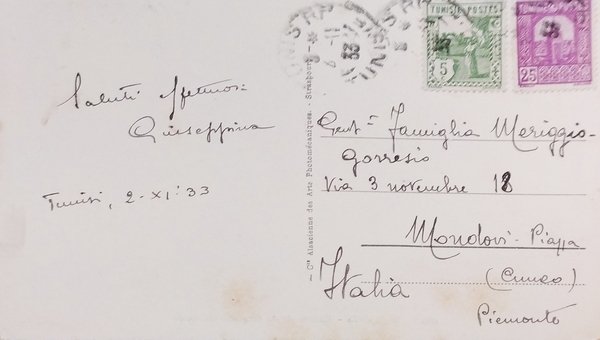 TUNISIE-POSTES
5
TUNISIE-POSTES
25
Saluti affettuosi
Giuseppina
Tunisi, 2-XI-33
Cie Alsacienne des Arts Photomécaniques. - Strasbourg
Gent.a Famiglia Meriggio-
Gorresio
Via 3 novembre 18
Mondovì-Piazza
(Cuneo)
Italia
Piemonte